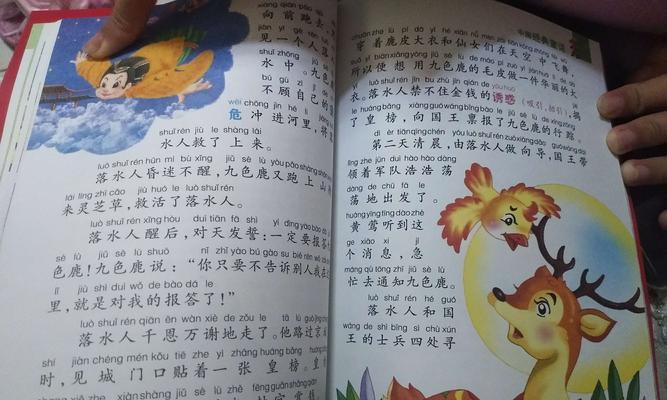 xiàng qián pǎo
向前跑去
jiàn yī gè rén luò
见一个人落
shuǐ zhōng jiǔ sè
水中。九色
bù gù zì jǐ
不顾自己的
wēi chōng jìn hé lǐ
危冲进河里,将
shuǐ rén jiù le shàng lái
水人救了上来。
luò shuǐ rén hūn mí bù xǐng jiǔ sè lù yòu pǎo shàng shān
落水人昏迷不醒,九色鹿又跑上山
lái líng zhī cǎo jiù huó le luò shuǐ rén
来灵芝草,救活了落水人。
luò shuǐ rén xǐng hòu duì tiān fā shì yí dìng yào bào
落水人醒后,对天发誓:一定要报答
sè lù jiǔ sè lù shuō nǐ zhǐ yào bú gào su bié rén wǒ
色鹿!九色鹿说:“你只要不告诉别人我在
lǐ jiù shì duì wǒ de bào dá le
里,就是对我的报答了!”
luò shuǐ rén qiān ēn wàn xiè de zǒu le tā lù guò jīng
落水人千恩万谢地走了。他路过京
shí jiàn chéng mén kǒu tiē zhe yì zhāng huáng bǎng
时,见城门口贴着一张皇榜。
中国经典童话
chuān zhe lù pí dà yī hé xiān nǚ men zài tiān kōng zhōng fēi wǔ
穿着鹿皮大衣和仙女们在天空中飞舞
suǒ yǐ biàn xiǎng yòng jiǔ sè lù de máo pí zuò yí jiàn huá lì de dà
所以便想用九色鹿的毛皮做一件华丽的大
yī luò shuǐ rén jīn bu zhù jīn qián de yòu huò
衣。落水人禁不住金钱的诱惑(吸引,招引),揭
le huáng bǎng xiàng guó wáng bǐng bào le jiǔ sè lù de xíng zōng
了皇榜,向国王禀报了九色鹿的行踪。
dì èr tiān qīng chén yóu luò shuǐ rén zuò xiàng dǎo guó wáng dài
第二天清晨,由落水人做向导,国王带
lǐng zhe jūn duì hào hào dàng
领着军队浩浩荡
dàng de chū fā le
荡地出发了。
huáng yīng tīng dào zhè
黄莺听到这
ge xiāo xi jí
个消息,急
máng qù tōng zhī jiǔ sè lù
忙去通知九色鹿。
luò shuǐ rén hé guó
落水人和国
wáng de shì bīng sì chù xún
王的士兵四处寻